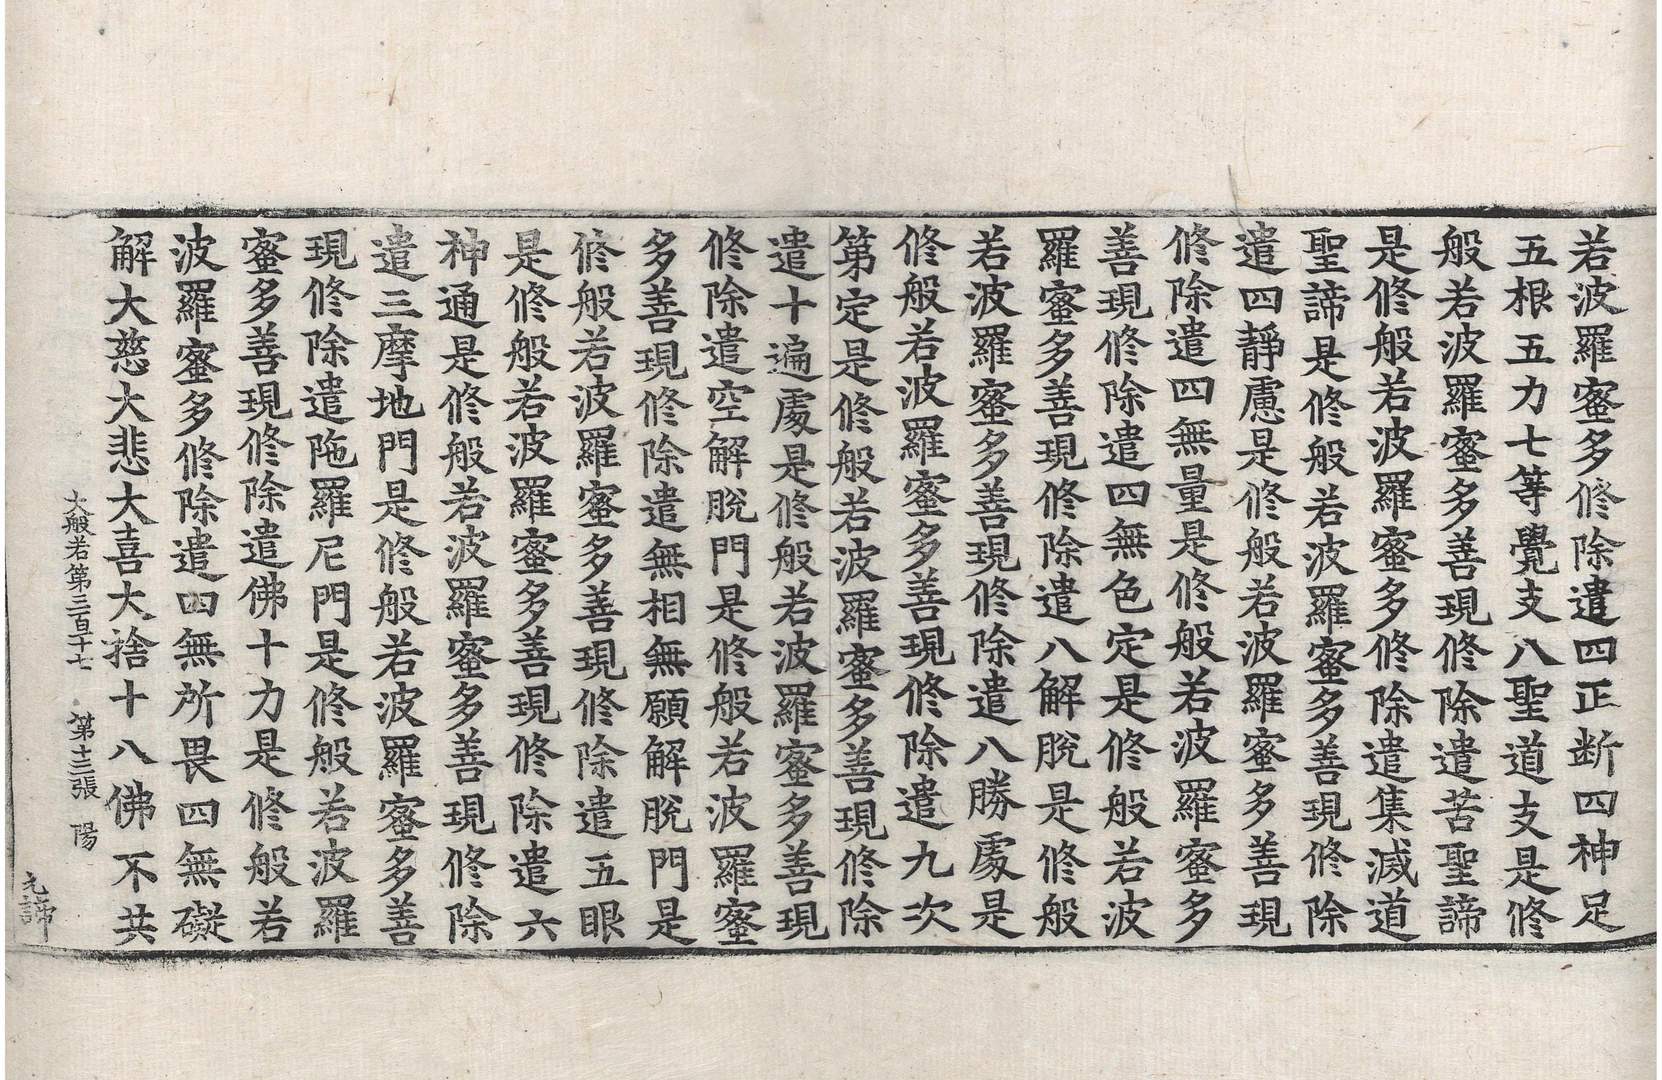 若波羅蜜多修除遣四正断四神足
五根五力七等覺支八聖道支是修
般若波羅蜜多善現修除遣苦聖諦
是修般若波羅蜜多修除遣集滅道
聖諦是修般若波羅蜜多善現修除
遣四靜慮是修般若波羅蜜多善現
修除遣四無量是修般若波羅蜜多
善現修除遣四無色定是修般若波
羅蜜多善現修除遣八解脫是修般
若波羅蜜多善現修除遣八勝處是
修般若波羅蜜多善現修除遣九次
第定是修般若波羅蜜多善現修除
遣十遍處是修般若波羅蜜多善現
修除遣空解脫門是修般若波羅蜜
多善現修除遣無相無願解脫門是
修般若波羅蜜多善現修除遣五眼
是修般若波羅蜜多善現修除遣六
神通是修般若波羅蜜多善現修除
遣三摩地門是修般若波羅蜜多善
現修除遣陁羅尼門是修般若波羅
蜜多善現修除遣佛十力是修般若
波羅蜜多修除遣四無所畏四無礙
解大慈大悲大喜大捨十八佛不共
大般若第三百十七 第十三張 陽
元諦